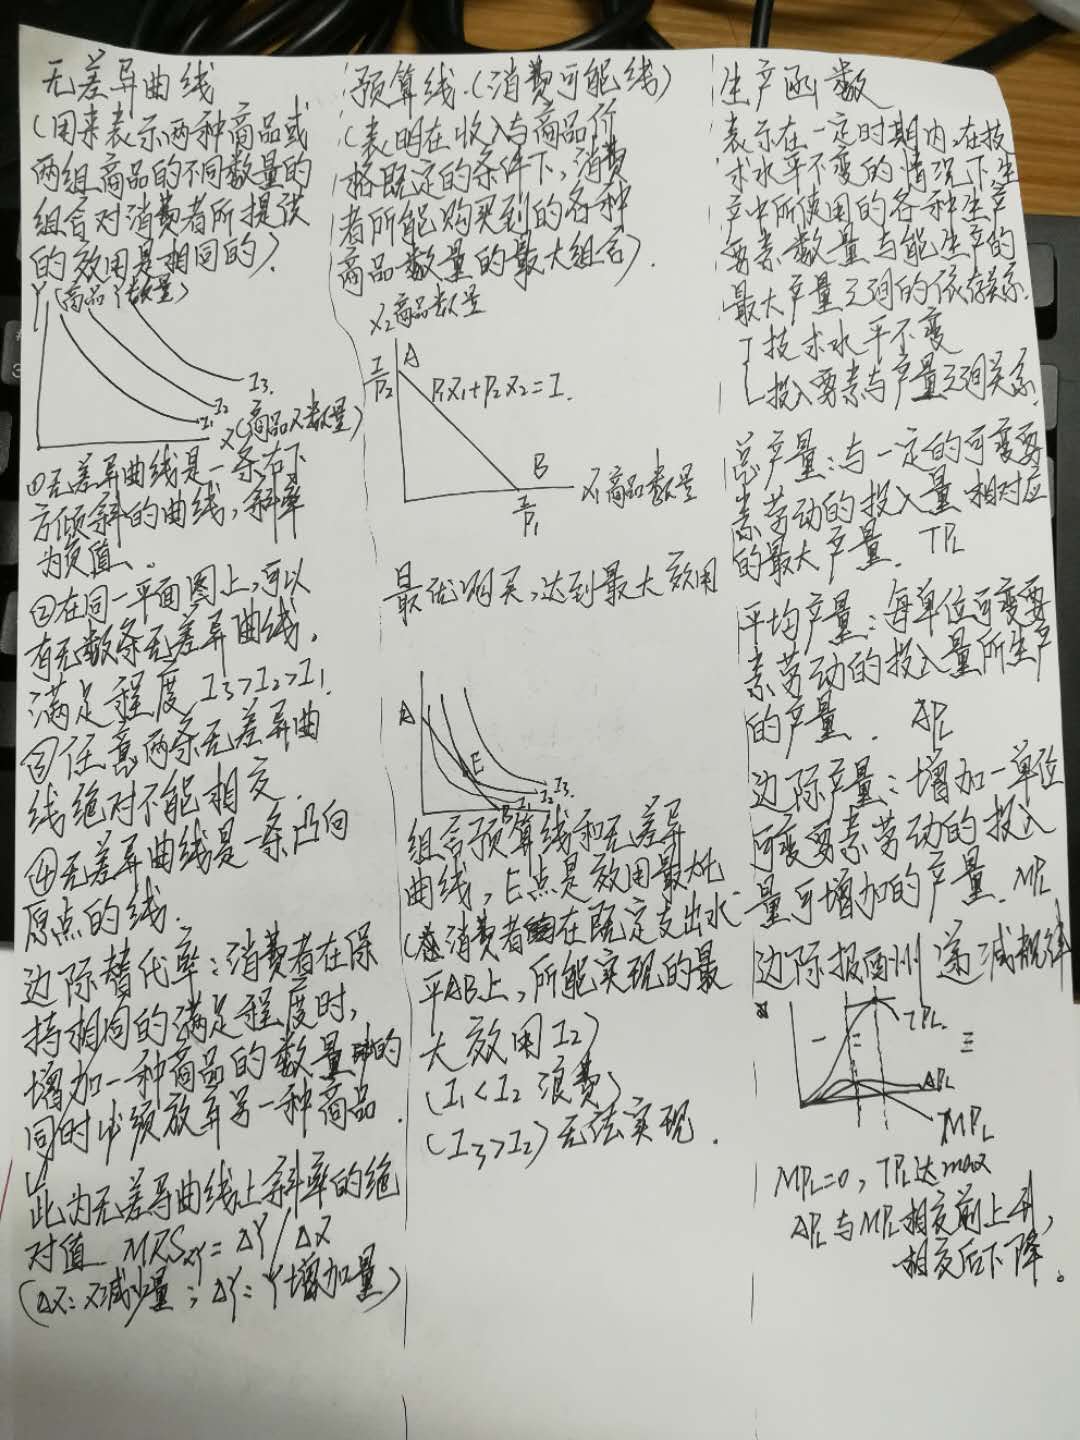 无差异曲线
(用来表示两种商品或
两组商品的不同数量的
组合对消费者所提供
的效用是相同的).
Y(商品Y数量)
I3.
I2
I1
X(商品X数量)
①无差异曲线是一条右下
方倾斜的曲线,斜率
为负值.
②在同一平面图上,可以
有无数条无差异曲线,
满足程度 I3>I2>I1.
③任意两条无差异曲
线绝对不能相交.
④无差异曲线是一条凸向
原点的线.
边际替代率:消费者在保
持相同的满足程度时,
增加一种商品的数量的
同时必须放弃另一种商品.
此为无差异曲线上斜率的绝
对值. MRSxy=ΔY/ΔX
(ΔX:X减少量;ΔY:Y增加量)
预算线.(消费可能线)
(表明在收入与商品价
格既定的条件下,消费
者所能购买到的各种
商品数量的最大组合).
X2商品数量
I/P2
A
P1X1+P2X2=I.
B
X1商品数量
I/P1
最优购买,达到最大效用
A
E
I2 I3.
B I1
组合预算线和无差异
曲线,E点是效用最大化
(消费者在既定支出水
平AB上,所能实现的最
大效用I2)
(I1<I2 浪费)
(I3>I2)无法实现.
生产函数
表示在一定时期内,在技
术水平不变的情况下生
产中所使用的各种生产
要素数量与能生产的
最大产量之间的依存关系.
技术水平不变
投入要素与产量之间关系.
总产量:与一定的可变要
素劳动的投入量相对应
的最大产量. TPL
平均产量:每单位可变要
素劳动的投入量所生产
的产量. APL
边际产量:增加一单位
可变要素劳动的投入
量可增加的产量. MPL
边际报酬 递减规律
TPL
一 二 三
APL
MPL
MPL=0,TPL达max
APL与MPL相交前上升,
相交后下降。